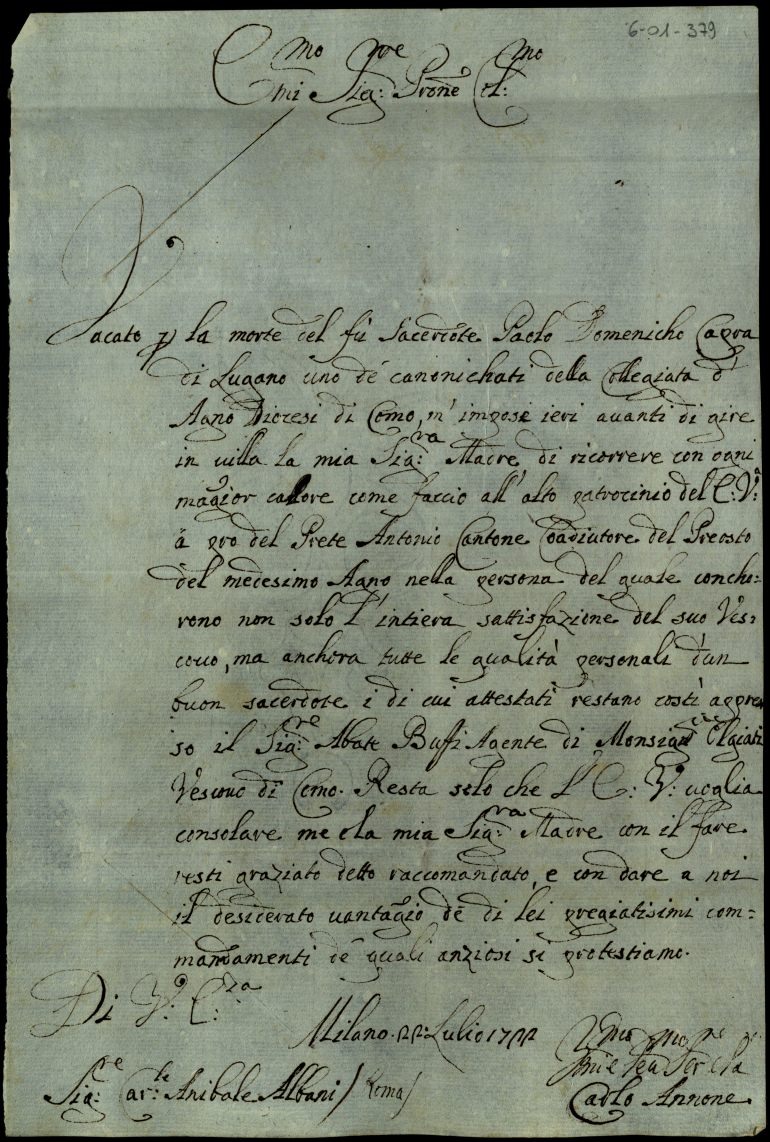 6-01-379
Em̃o mo Sig:re Prone Col:mo
Vacato p la morte del fù Sacerdote Paolo Domenicho Capra
di Lugano uno de canonichati della Collegiata d'
Agno Diocesi di Como, m'impose ieri auanti di gire
in uilla la mia Sig:ra Madre di ricorrere con ogni
magior callore come faccio all'alto patrocinio del E: V:a
à pro del Prete Antonio Cantone Coadiutore del Preosto
del medesimo Agno nella persona del quale concho=
rono non solo l'intiera sattisfazione del suo Ves=
couo, ma anchora tutte le qualità personali d'un
buon sacerdote i di cui attestati restano costì appre
so il Sig:re Abate Bussi Agente di Monsig: Olgiati
Vescouo di Como. Resta solo che l'E: V: uoglia
consolare me e la mia Sig:ra Madre con il fare
resti graziato detto raccomandato, e con dare a noi
il desiderato uantagio de di lei pregiatisimi com=
mandamenti de quali anziosi si protestiamo.
Di V: E:za
Milano 22: Lulio 1722
Sig:re Car:le Anibale Albani / Roma /
Carlo Annone